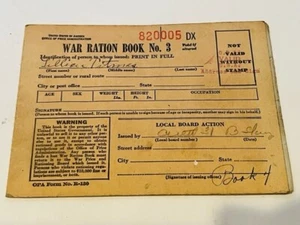 UNITED STATES OF AMERICA
OFFICE OF PRICE ADMINISTRATION
820005 DX
WAR RATION BOOK No. 3
Void if altered
NOT
VALID
WITHOUT
STAMP
Identification of person to whom issued: PRINT IN FULL
(First name) (Middle name) (Last name)
Street number or rural route
City or post office State
AGE SEX WEIGHT HEIGHT OCCUPATION
Lbs. Ft. In.
SIGNATURE
(Person to whom book is issued. If such person is unable to sign because of age or incapacity, another may sign in his behalf.)
WARNING
This book is the property of the
United States Government. It is
unlawful to sell it to any other
person, or to use it or permit
anyone else to use it, except to
obtain rationed goods in accord-
ance with regulations of the Office
of Price Administration. Any per-
son who finds a lost War Ration
Book must return it to the War
Price and Rationing Board which
issued it. Persons who violate
rationing regulations are subject
to $10,000 fine or imprisonment,
or both.
LOCAL BOARD ACTION
Issued by
(Local board number) (Date)
Street address
City State
(Signature of issuing officer)
Book 4
OPA Form No. R-130